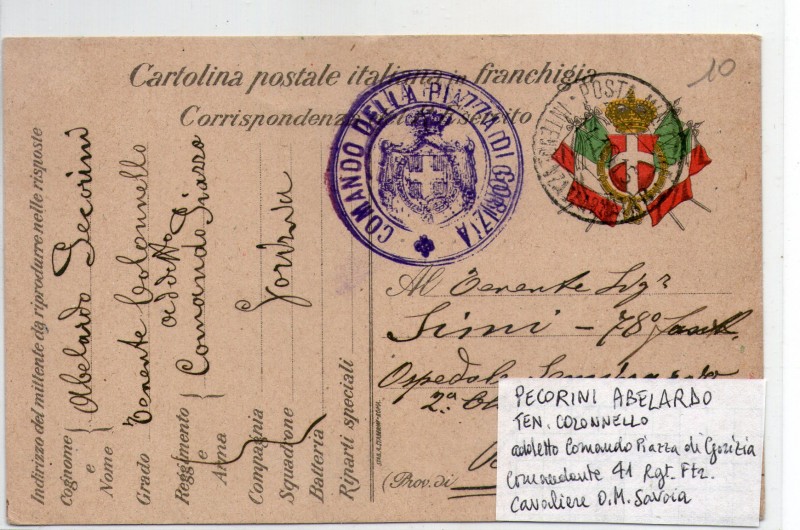 10
Cartolina postale italiana in franchigia
Corrispondenza
COMANDO DELLA PIAZZA DI GORIZIA
POSTA
Indirizzo del mittente da riprodurre nelle risposte
Cognome e Nome { Abelardo Pecorini
Grado Tenente Colonnello
Reggimento Arma { addetto Comando Piazza
Compagnia Squadrone Batteria { Gorizia
Riparti speciali
Al Tenente Sigr
Simi - 78º Fant.
Ospedale
2.a
(Prov. di
PECORINI ABELARDO
TEN. COLONNELLO
addetto Comando Piazza di Gorizia
Comandante 41 Rgt. Ftr.
Cavaliere O.M. Savoia